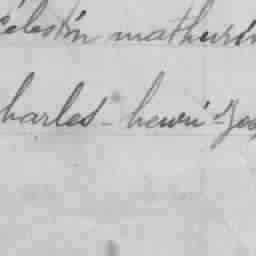 célestin mathurin
charles-henri-